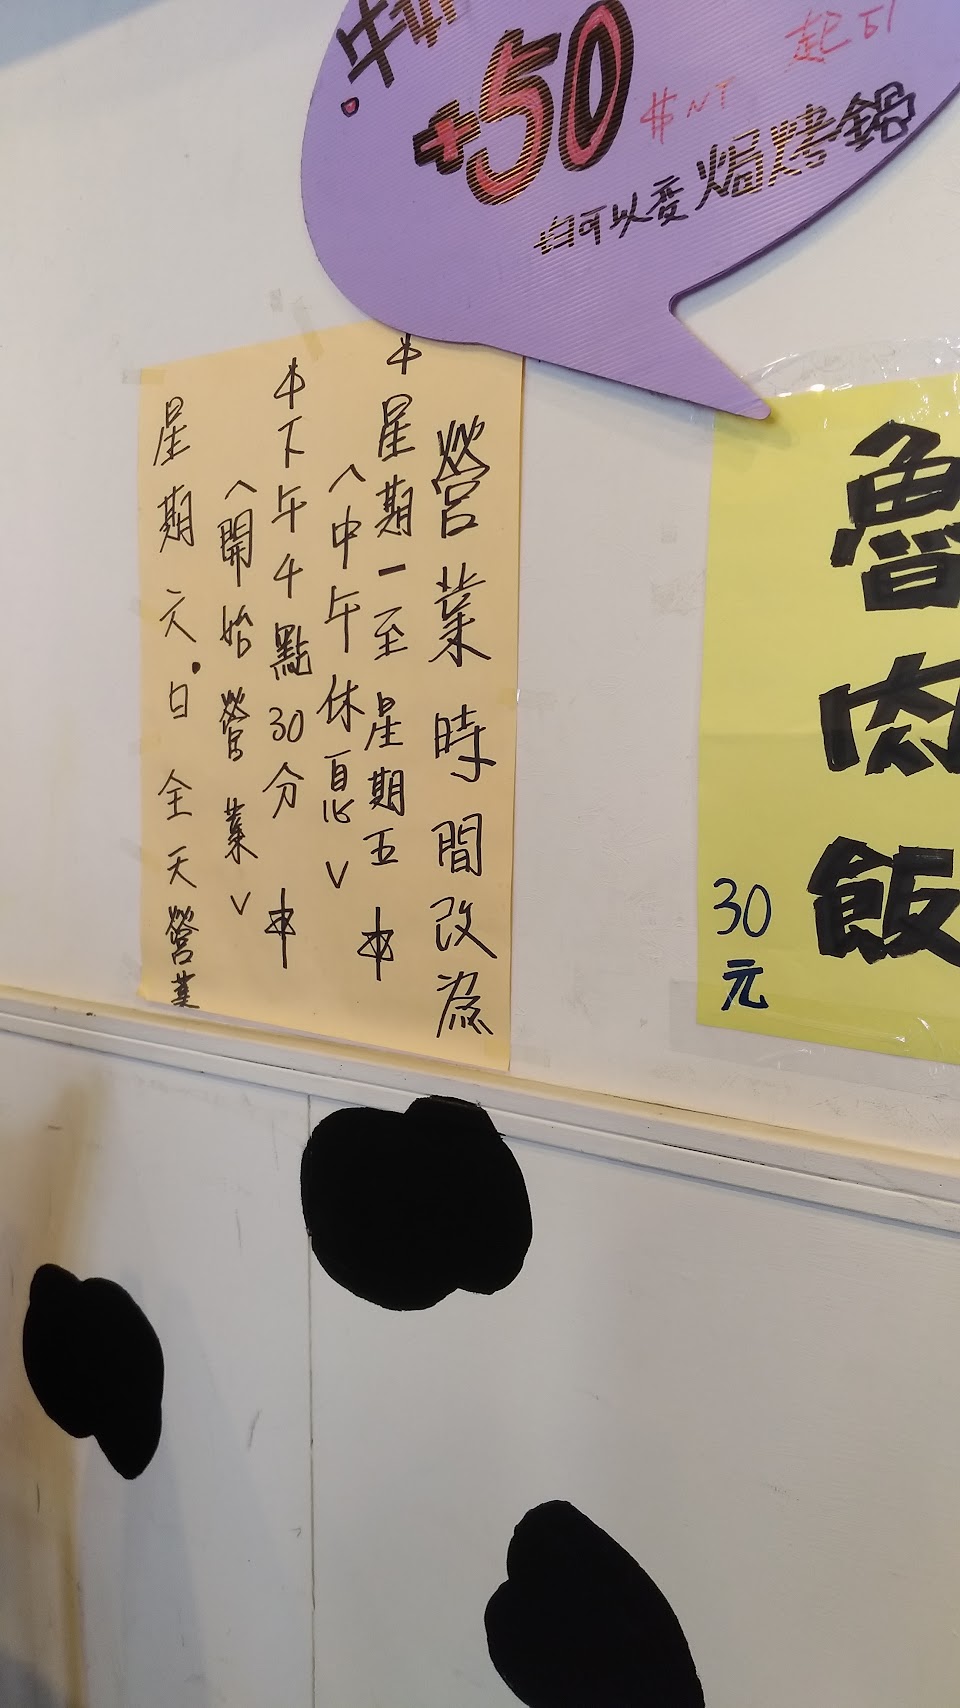 +50
$NT
均可以變焗烤鍋
營業時間改為
*星期一至星期五*
<中午休息>
*下午4點30分*
<開始營業>
星期六.日全天營業
魯肉飯
30元